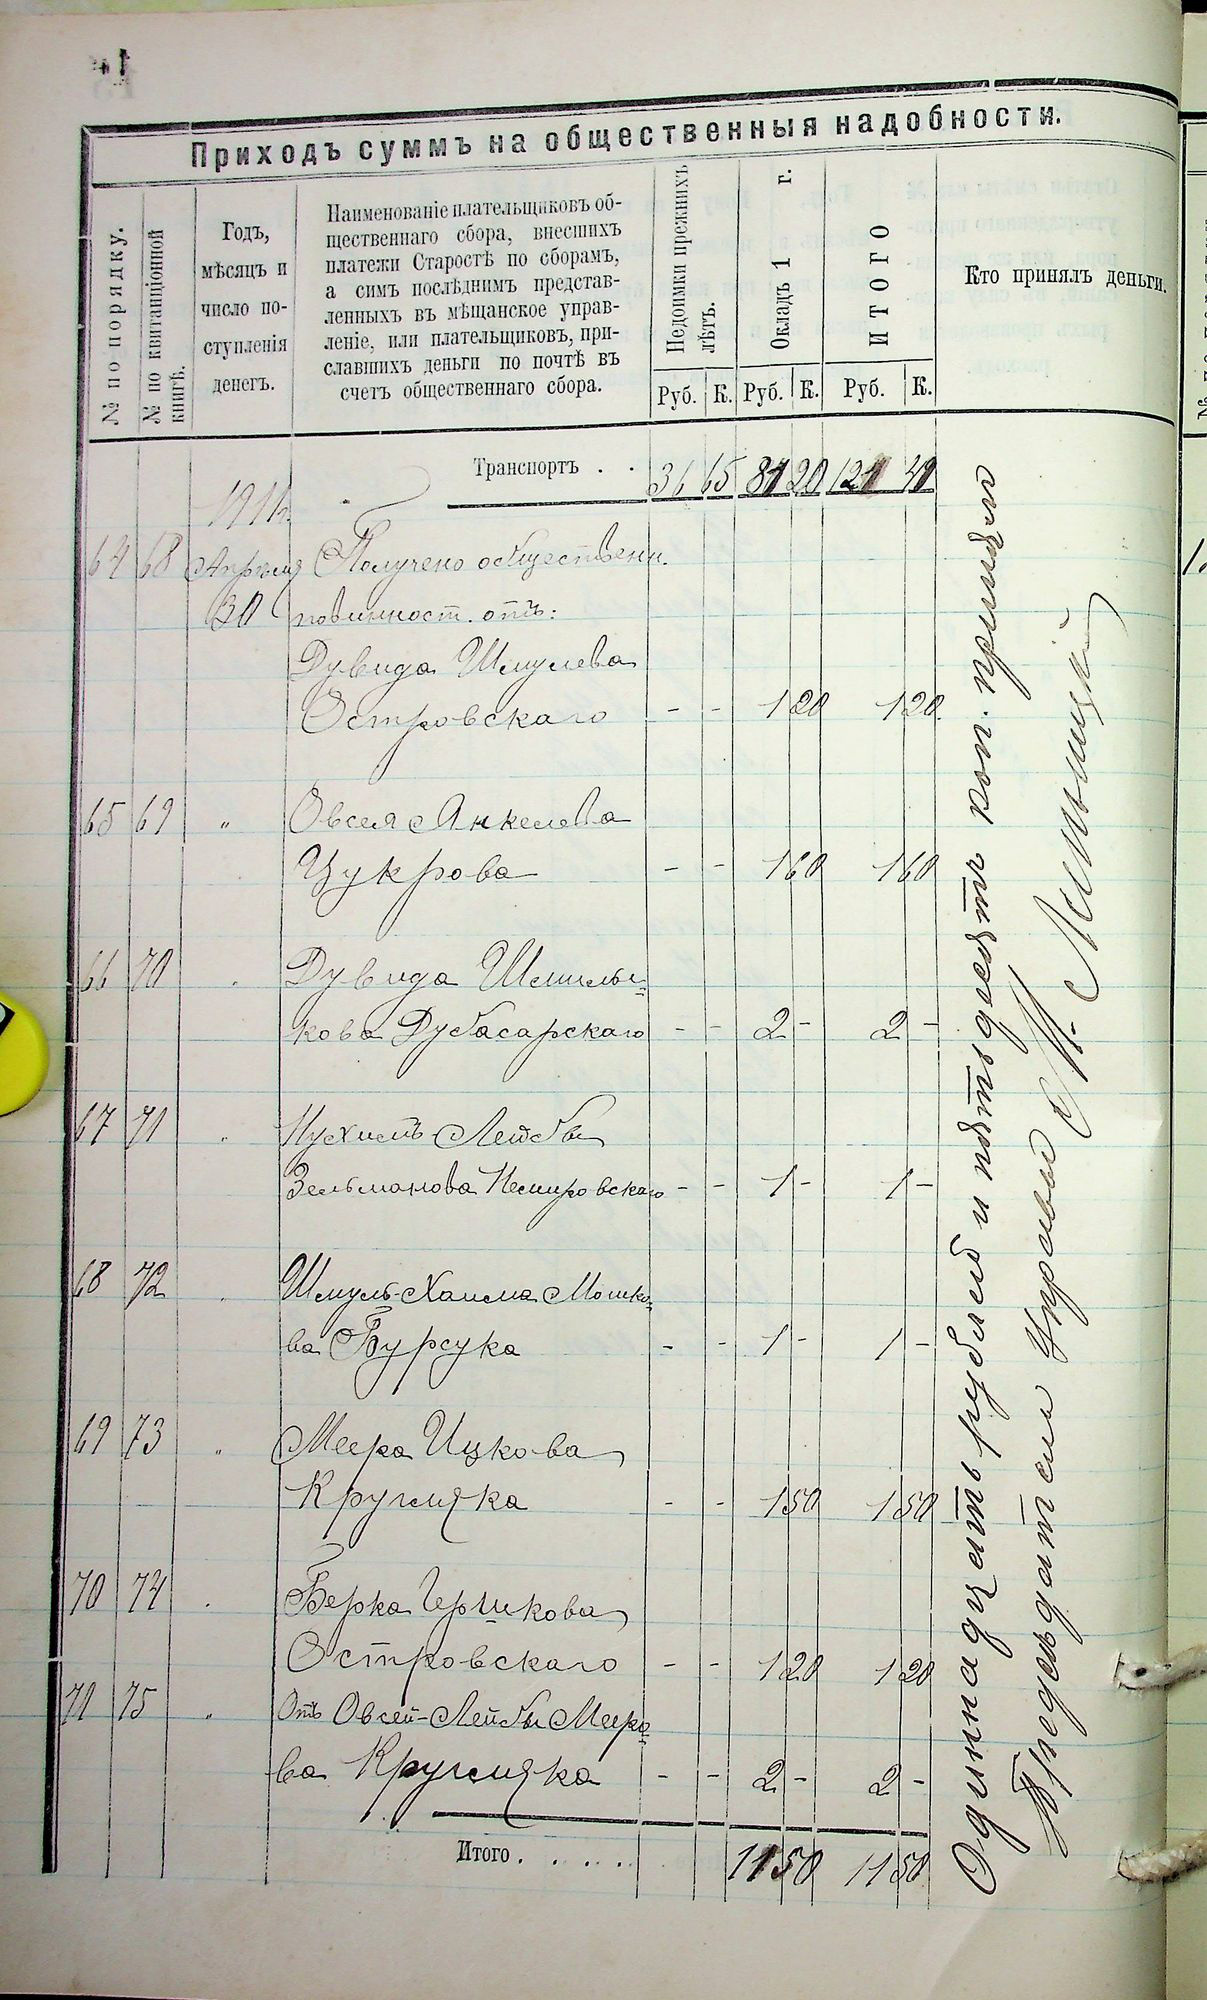 Приходъ суммъ на общественныя надобности.
№ по порядку.
№ по квитанціонной
книгѣ.
Годъ,
мѣсяцъ и
число по-
ступленія
денегъ.
Наименованіе плательщиковъ об-
щественнаго сбора, внесшихъ
платежи Старостѣ по сборамъ,
а симъ послѣднимъ представ-
ленныхъ въ мѣщанское управ-
леніе, или плательщиковъ, при-
славшихъ деньги по почтѣ въ
счетъ общественнаго сбора.
Недоимки прежнихъ
лѣтъ.
Окладъ 1 г.
ИТОГО
Кто принялъ деньги.
Руб. К. Руб. К. Руб. К.
Транспортъ . . 36 65 81 20 121 40
64 68 Апрѣля Получено общественн.
30 повинност. отъ:
Дувида Шмулева
Островскаго - - 1 20 1 20
65 69 " Овсея Янкелева
Цукрова - - 1 60 1 60
66 70 " Дувида Шмиль-
кова Дубасарскаго - - 2 - 2 -
67 71 " Нухимъ Лейбы
Зельманова Немировскаго - - 1 - 1 -
68 72 " Шмуль-Хаима Мошко-
ва Бурсука - - 1 - 1 -
69 73 " Меера Ицкова
Кругляка - - 1 50 1 50
70 74 " Берка Гершкова
Островскаго - - 1 20 1 20
71 75 " Отъ Овсей-Лейбы Меера-
ва Кругляка - - 2 - 2 -
Итого . . . . . 11 50 11 50
Одиннадцать рублей и пятьдесятъ коп. принялъ
Предсѣдатель Управы